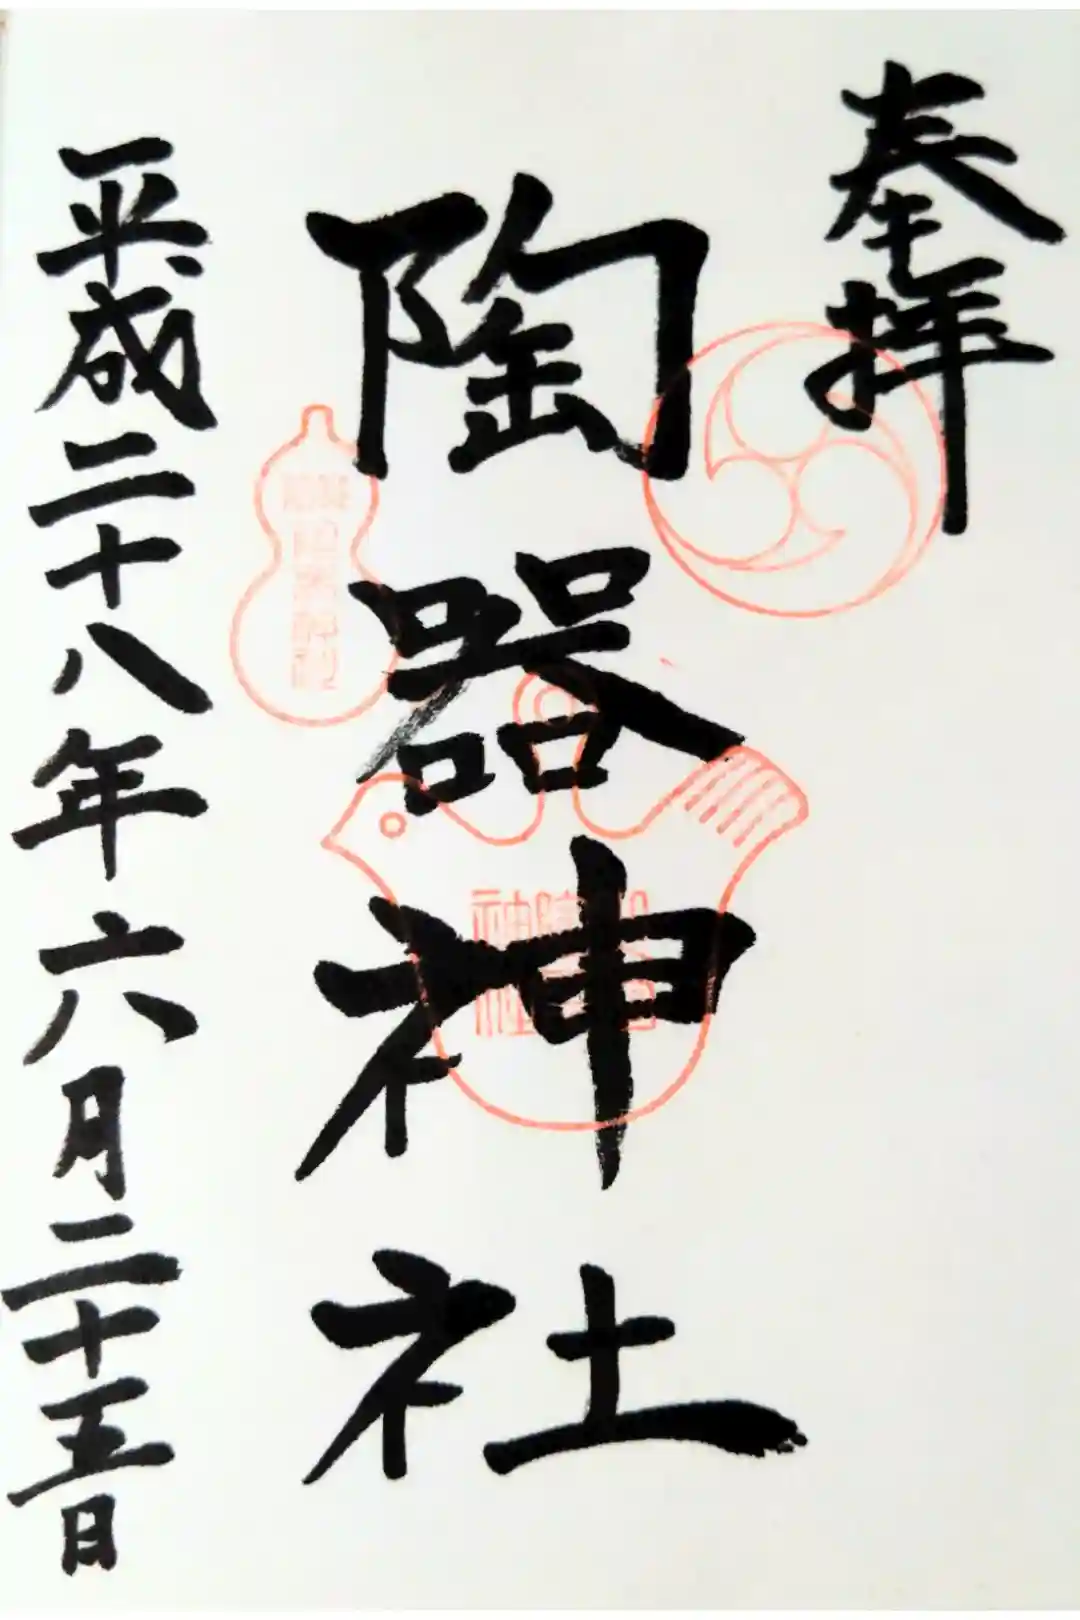 奉拝
陶器神社
平成二十八年六月二十五日